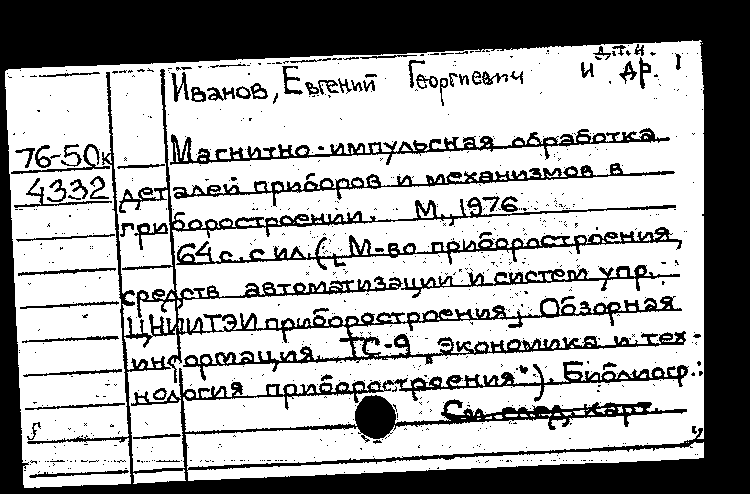 д.т.н.
Иванов, Евгений Георгиевич и др. 1
76-50к Магнитно-импульсная обработка
4332 деталей приборов и механизмов в
приборостроении. М., 1976.
64 с. с ил. ( М-во приборостроения,
средств автоматизации и систем упр.
ЦНИИТЭИ приборостроения. Обзорная
информация. ТС-9 „Экономика и тех-
нология приборостроения"). Библиогр.:
См. след. карт.